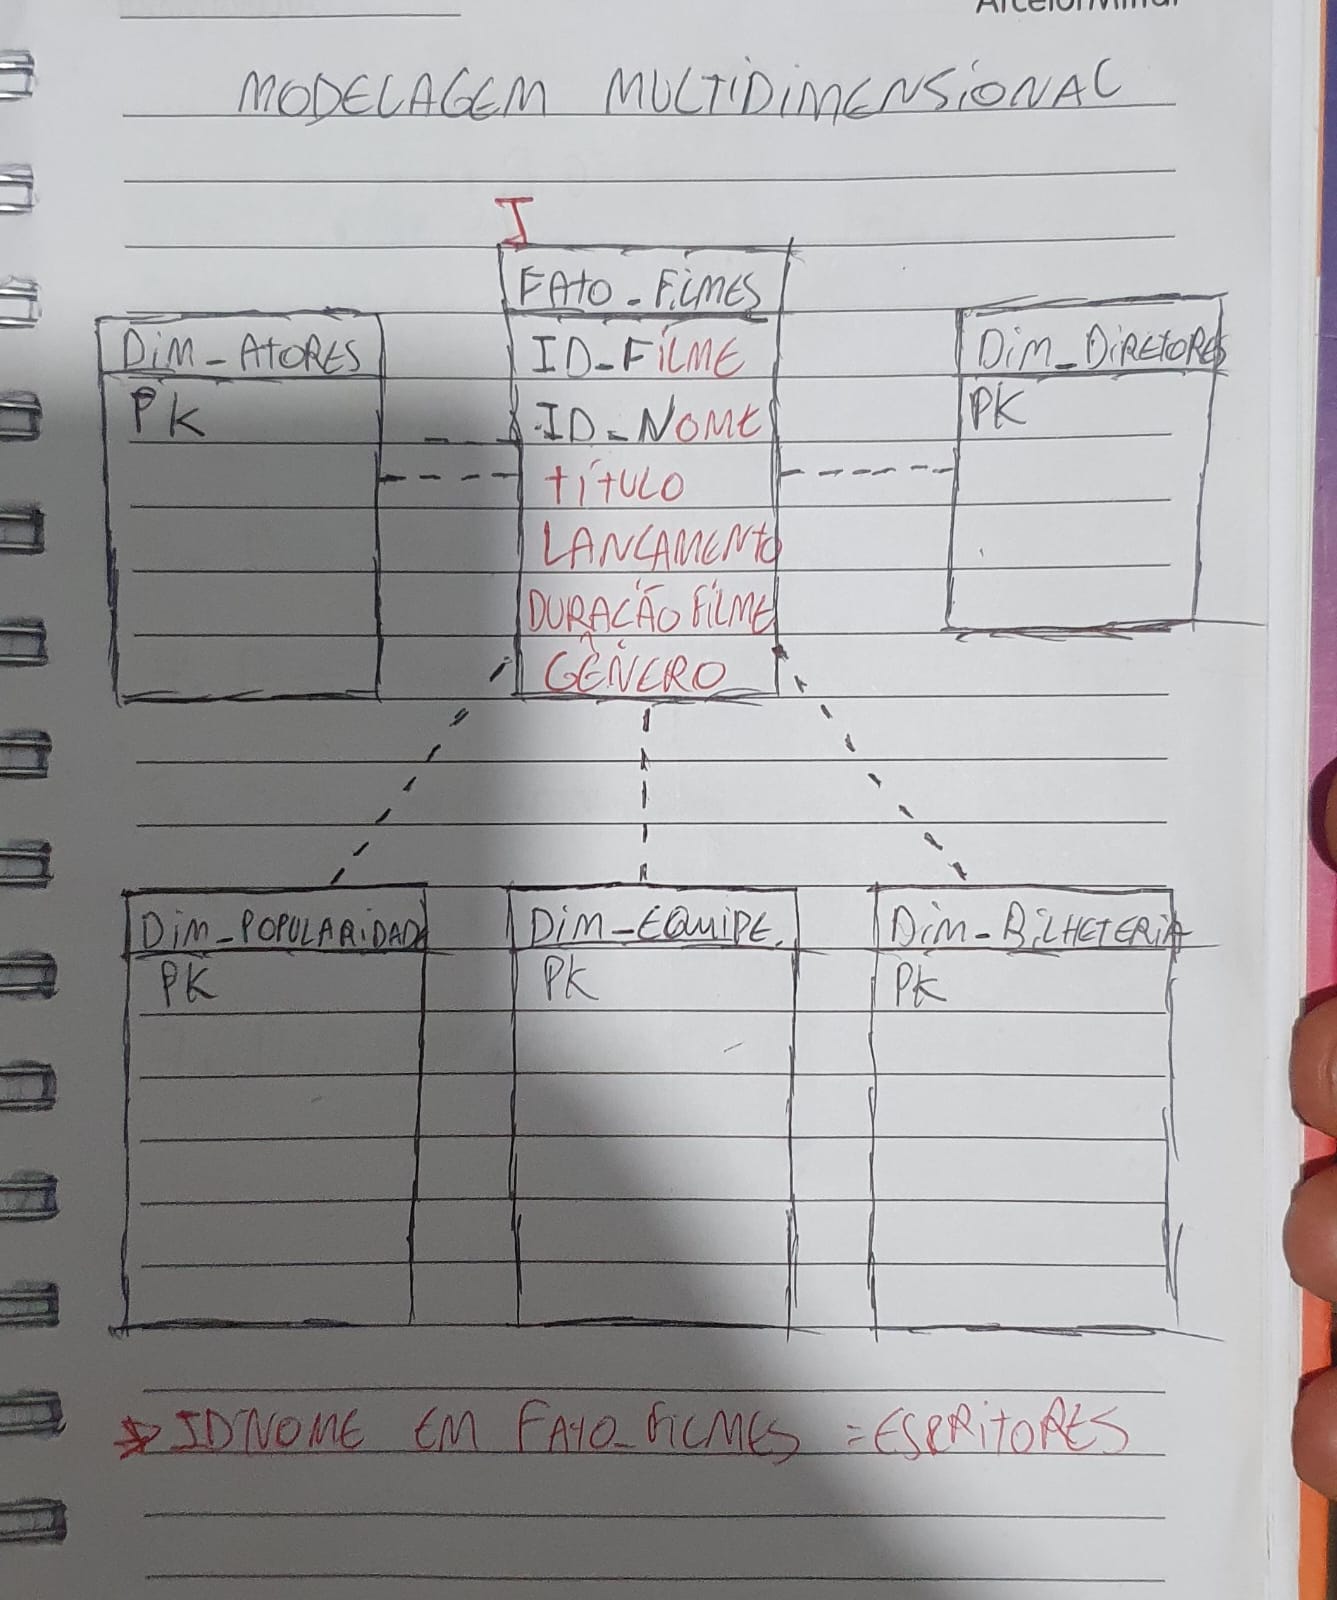 ArcelorMittal
MODELAGEM MULTIDIMENSIONAL
I
FATO_FILMES
DIM_ATORES
PK
ID_FILME
ID_NOME
TÍTULO
LANÇAMENTO
DURAÇÃO FILME
GÊNERO
DIM_DIRETORES
PK
DIM_POPULARIDAD
PK
DIM_EQUIPE
PK
DIM_BILHETERIA
PK
→ ID NOME EM FATO_FILMES = ESCRITORES